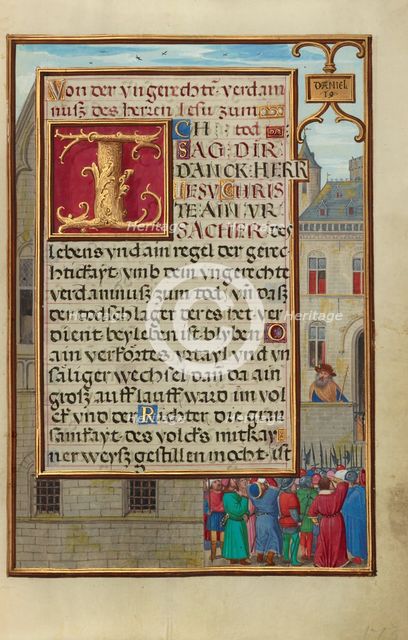 Von der vngerechtē verdam
nuß des herren Iesu zum
tod
I CH
SAG DIR
DANCK HERR
IESV CHRIS
TE AIN VR
SACHER des
lebens vnd ain regel der gerech
tickayt vmb dein vngerechte
verdamnuß zum tod vn daß
der todschlager der es het ver
dient bey leben ist blyben O
ain verkörtes vrtayl vnd vn
säliger wechsel dan da ain
groß aufflauff ward im vol
ck vnd der Richter die grau
samkayt des volcks mit kay
ner weyß gestillen mocht ist
DANIEL
19
Heritage
Heritage
Heritage